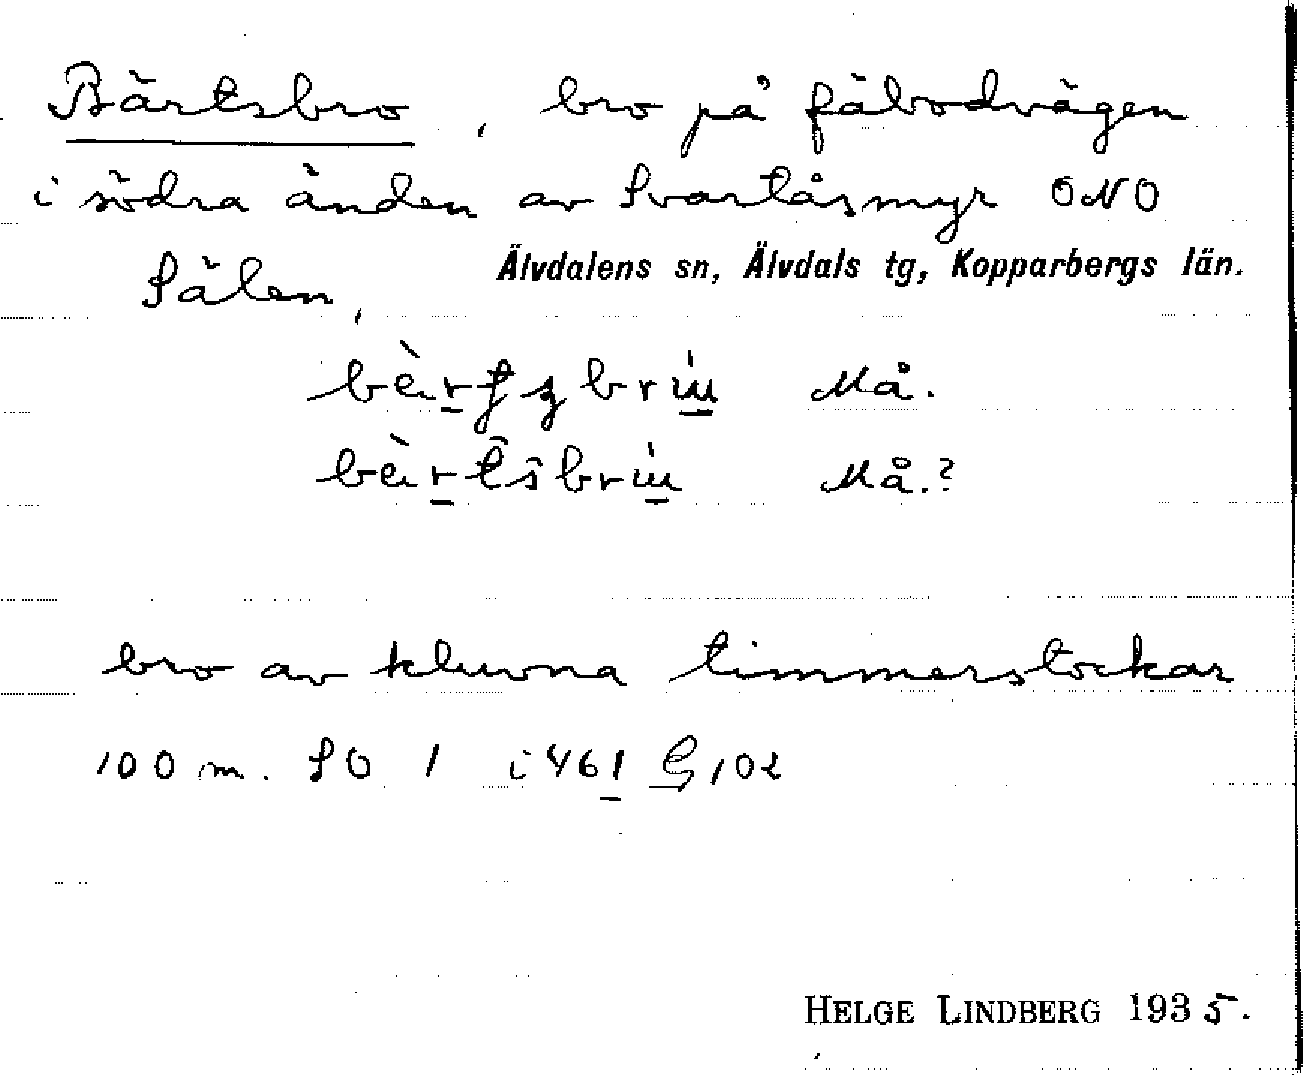 Bärtsbro, bro på fäbodvägen
i södra änden av Svartåsmyr ONO
Sälen,
Älvdalens sn, Älvdals tg, Kopparbergs län.
Må.
Må.?
bro av kluvna timmerstockar
100 m. SO 1 i 461 G 102
HELGE LINDBERG 1935.